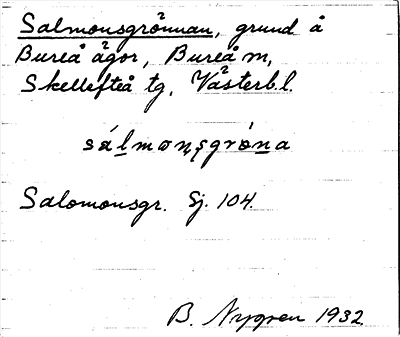 Salmonsgrönnan, grund å
Bureå ägor, Bureå m,
Skellefteå tg, Västerb.l.
sálmonsgròna
Salomonsgr. Sj. 104.
B. Nygren 1932